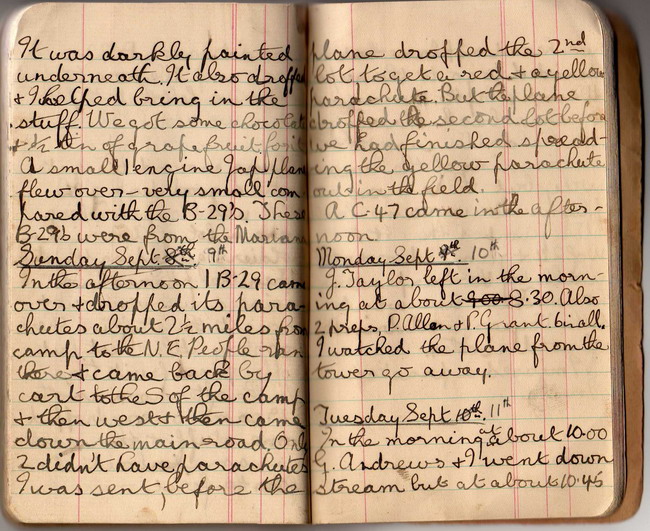 It was darkly painted
underneath. It also dropped
& I helped bring in the
stuff. We got some chocolate
& ½ tin of grapefruit for it
A small 1 engine Jap plane
flew over - very small com
pared with the B-29's. These
B-29's were from the Marianas
Sunday Sept 8th 9th
In the afternoon 1 B-29 came
over & dropped its para-
chutes about 2½ miles from
camp to the N.E. People ran
there & came back by
cart to the S of the camp
& then west & then came
down the main road. Only
2 didn't have parachutes
I was sent, before the
plane dropped the 2nd
lot to get a red & a yellow
parachute. But the plane
dropped the second lot before
we had finished spread-
ing the yellow parachute
out in the field.
A C-47 came in the after-
noon
Monday Sept 9th. 10th
J. Taylor left in the morn-
ing at about 9.00 8.30. Also
2 preps, P. Allen & P. Grant
I watched the plane from the
tower go away.
Tuesday Sept 10th. 11th
In the morning at about 10.00
G. Andrews & I went down
stream but at about 10.45